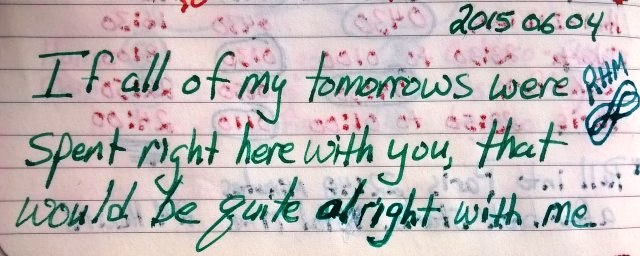 2015 06 04
If all of my tomorrows were
RHM
Spent right here with you, that
would be quite alright with me